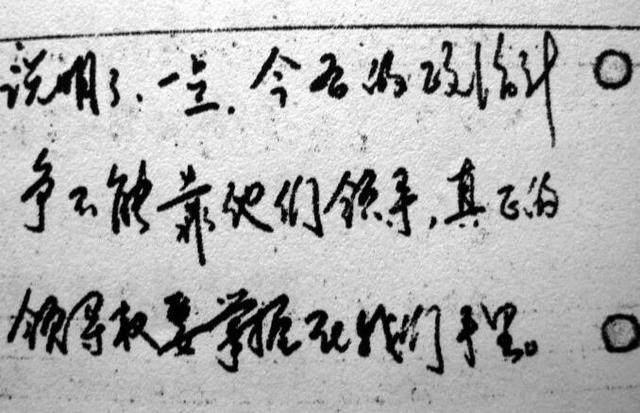 说明了、一点,今后的政治斗
争不能靠他们领导,真正的
领导权要掌握在我们手里。